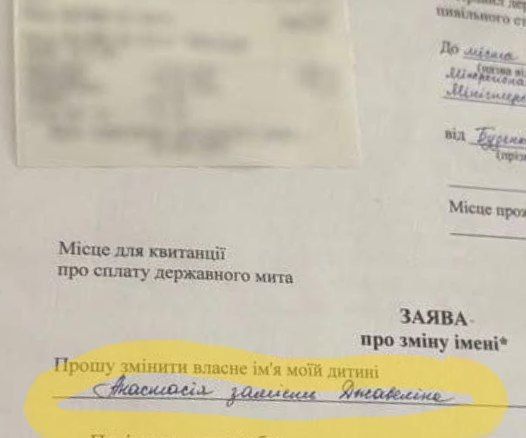 цивільного ст
До міста
(назва ві
Міністерс
від
Місце прож
Місце для квитанції
про сплату державного мита
ЗАЯВА
про зміну імені*
Прошу змінити власне ім'я моїй дитині
Анастасія замість Джавеліна